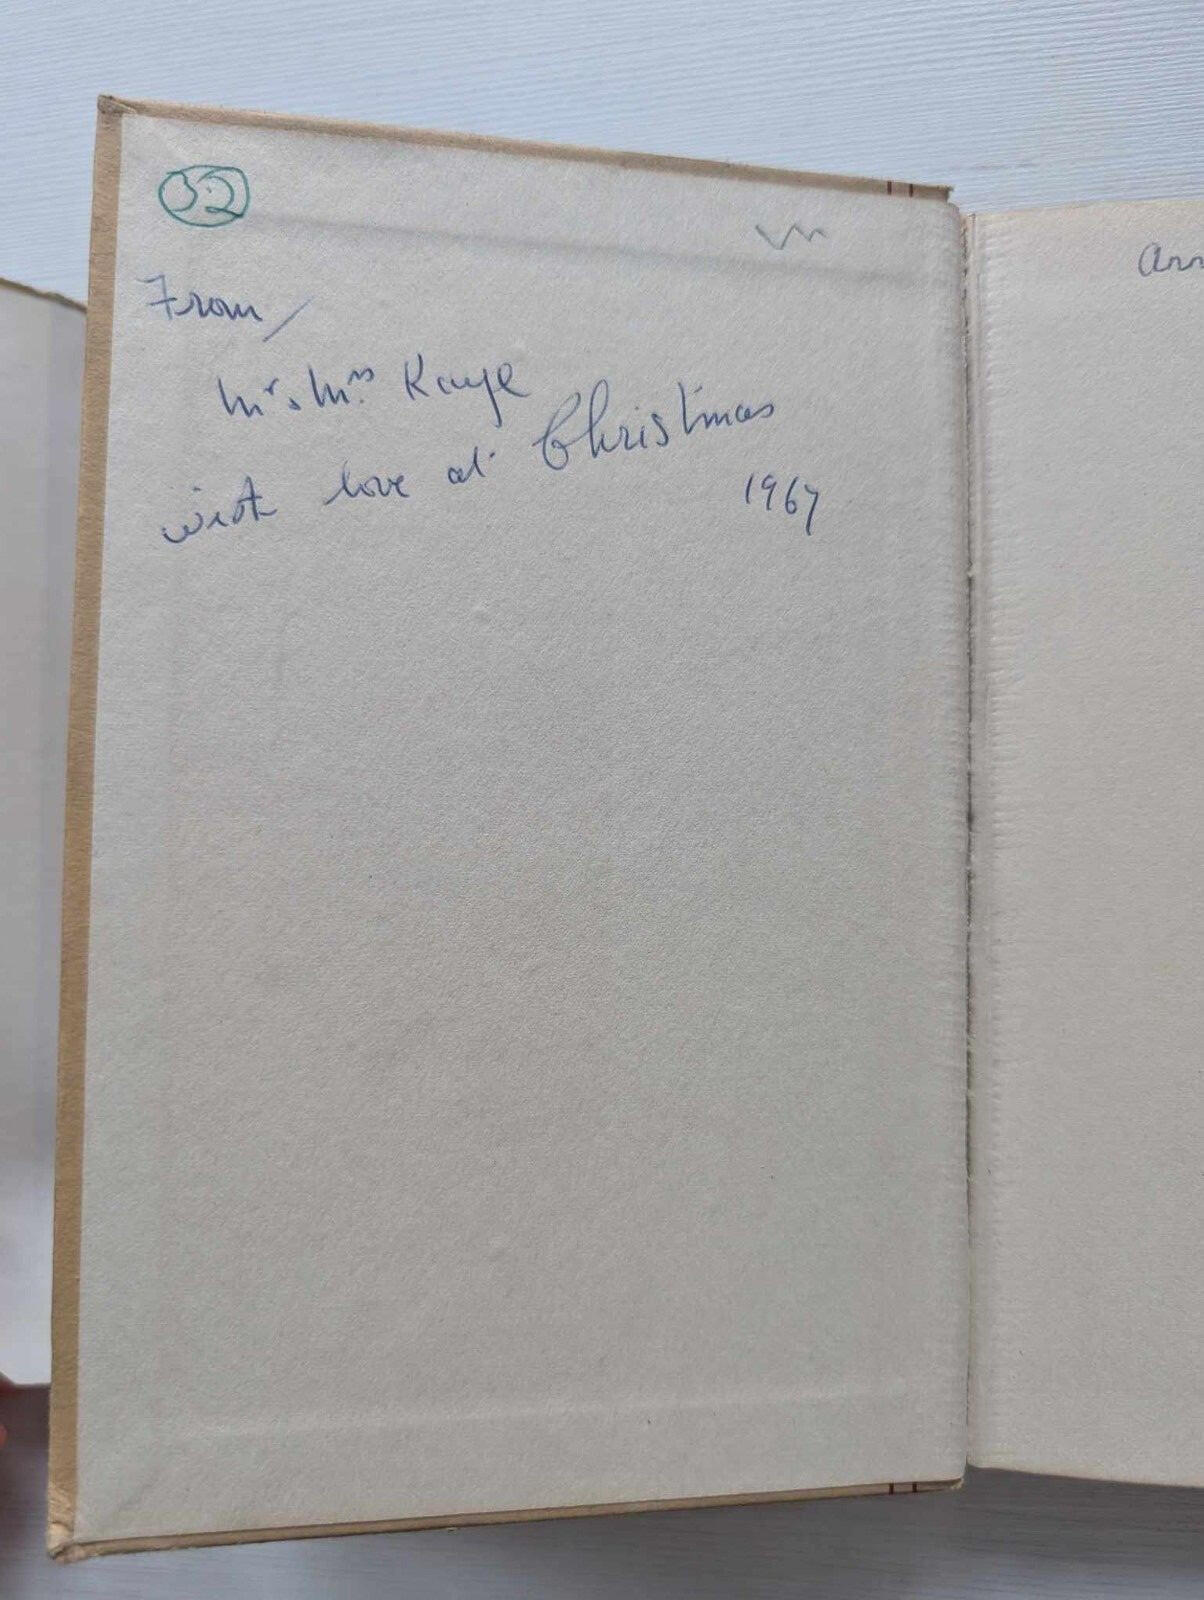 32
From/
Mr & Mrs Kaye
with love at Christmas
1967